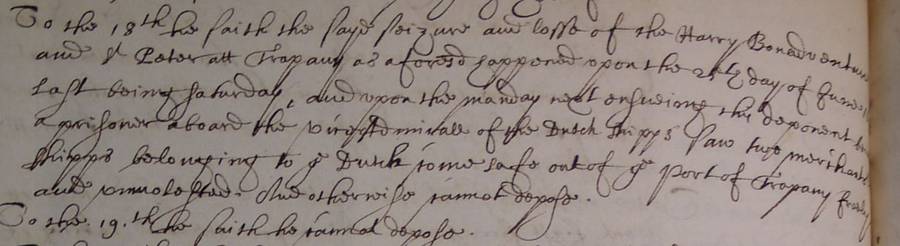 To the 18th he saith the sayd seizure and losse of the Harry Bonadventure
and St Peter att Trapany as aforesd happened upon the 25th day of June
last being saturday, and upon the munday next ensueing this deponent being
a prisoner aboard the viceAdmirall of the Dutch shipps saw two merchant
shipps belonging to ye Dutch come safe out of ye Port of Trapany freely
and unmolested. And otherwise cannot depose.
To the 19.th he saith he cannot depose.